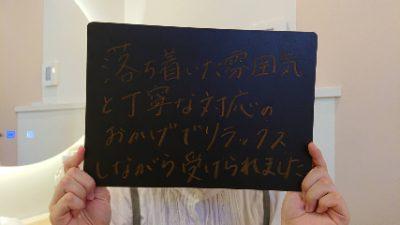 落ち着いた雰囲気
と丁寧な対応の
おかげでリラックス
しながら受けられました